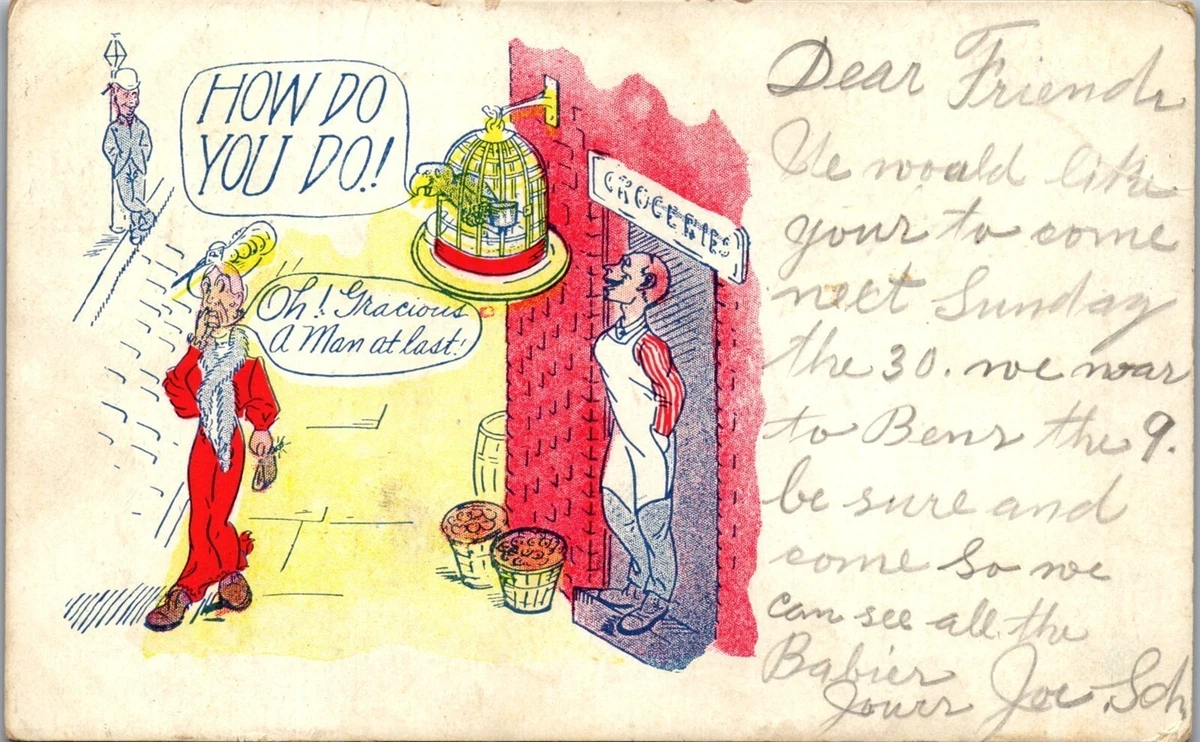 HOW DO
YOU DO!
Oh! Gracious
A Man at last!
GROCERIES
Dear Friends
We would like
your to come
nect Sunday
the 30. we war
to Bens the 9.
be sure and
come So we
can see all the
Babier
yours Joe Sch